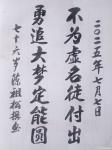 二〇二五年七月七日
不為虚名徒付出
勇追大梦定能圆
七十六岁陈祖松撰書